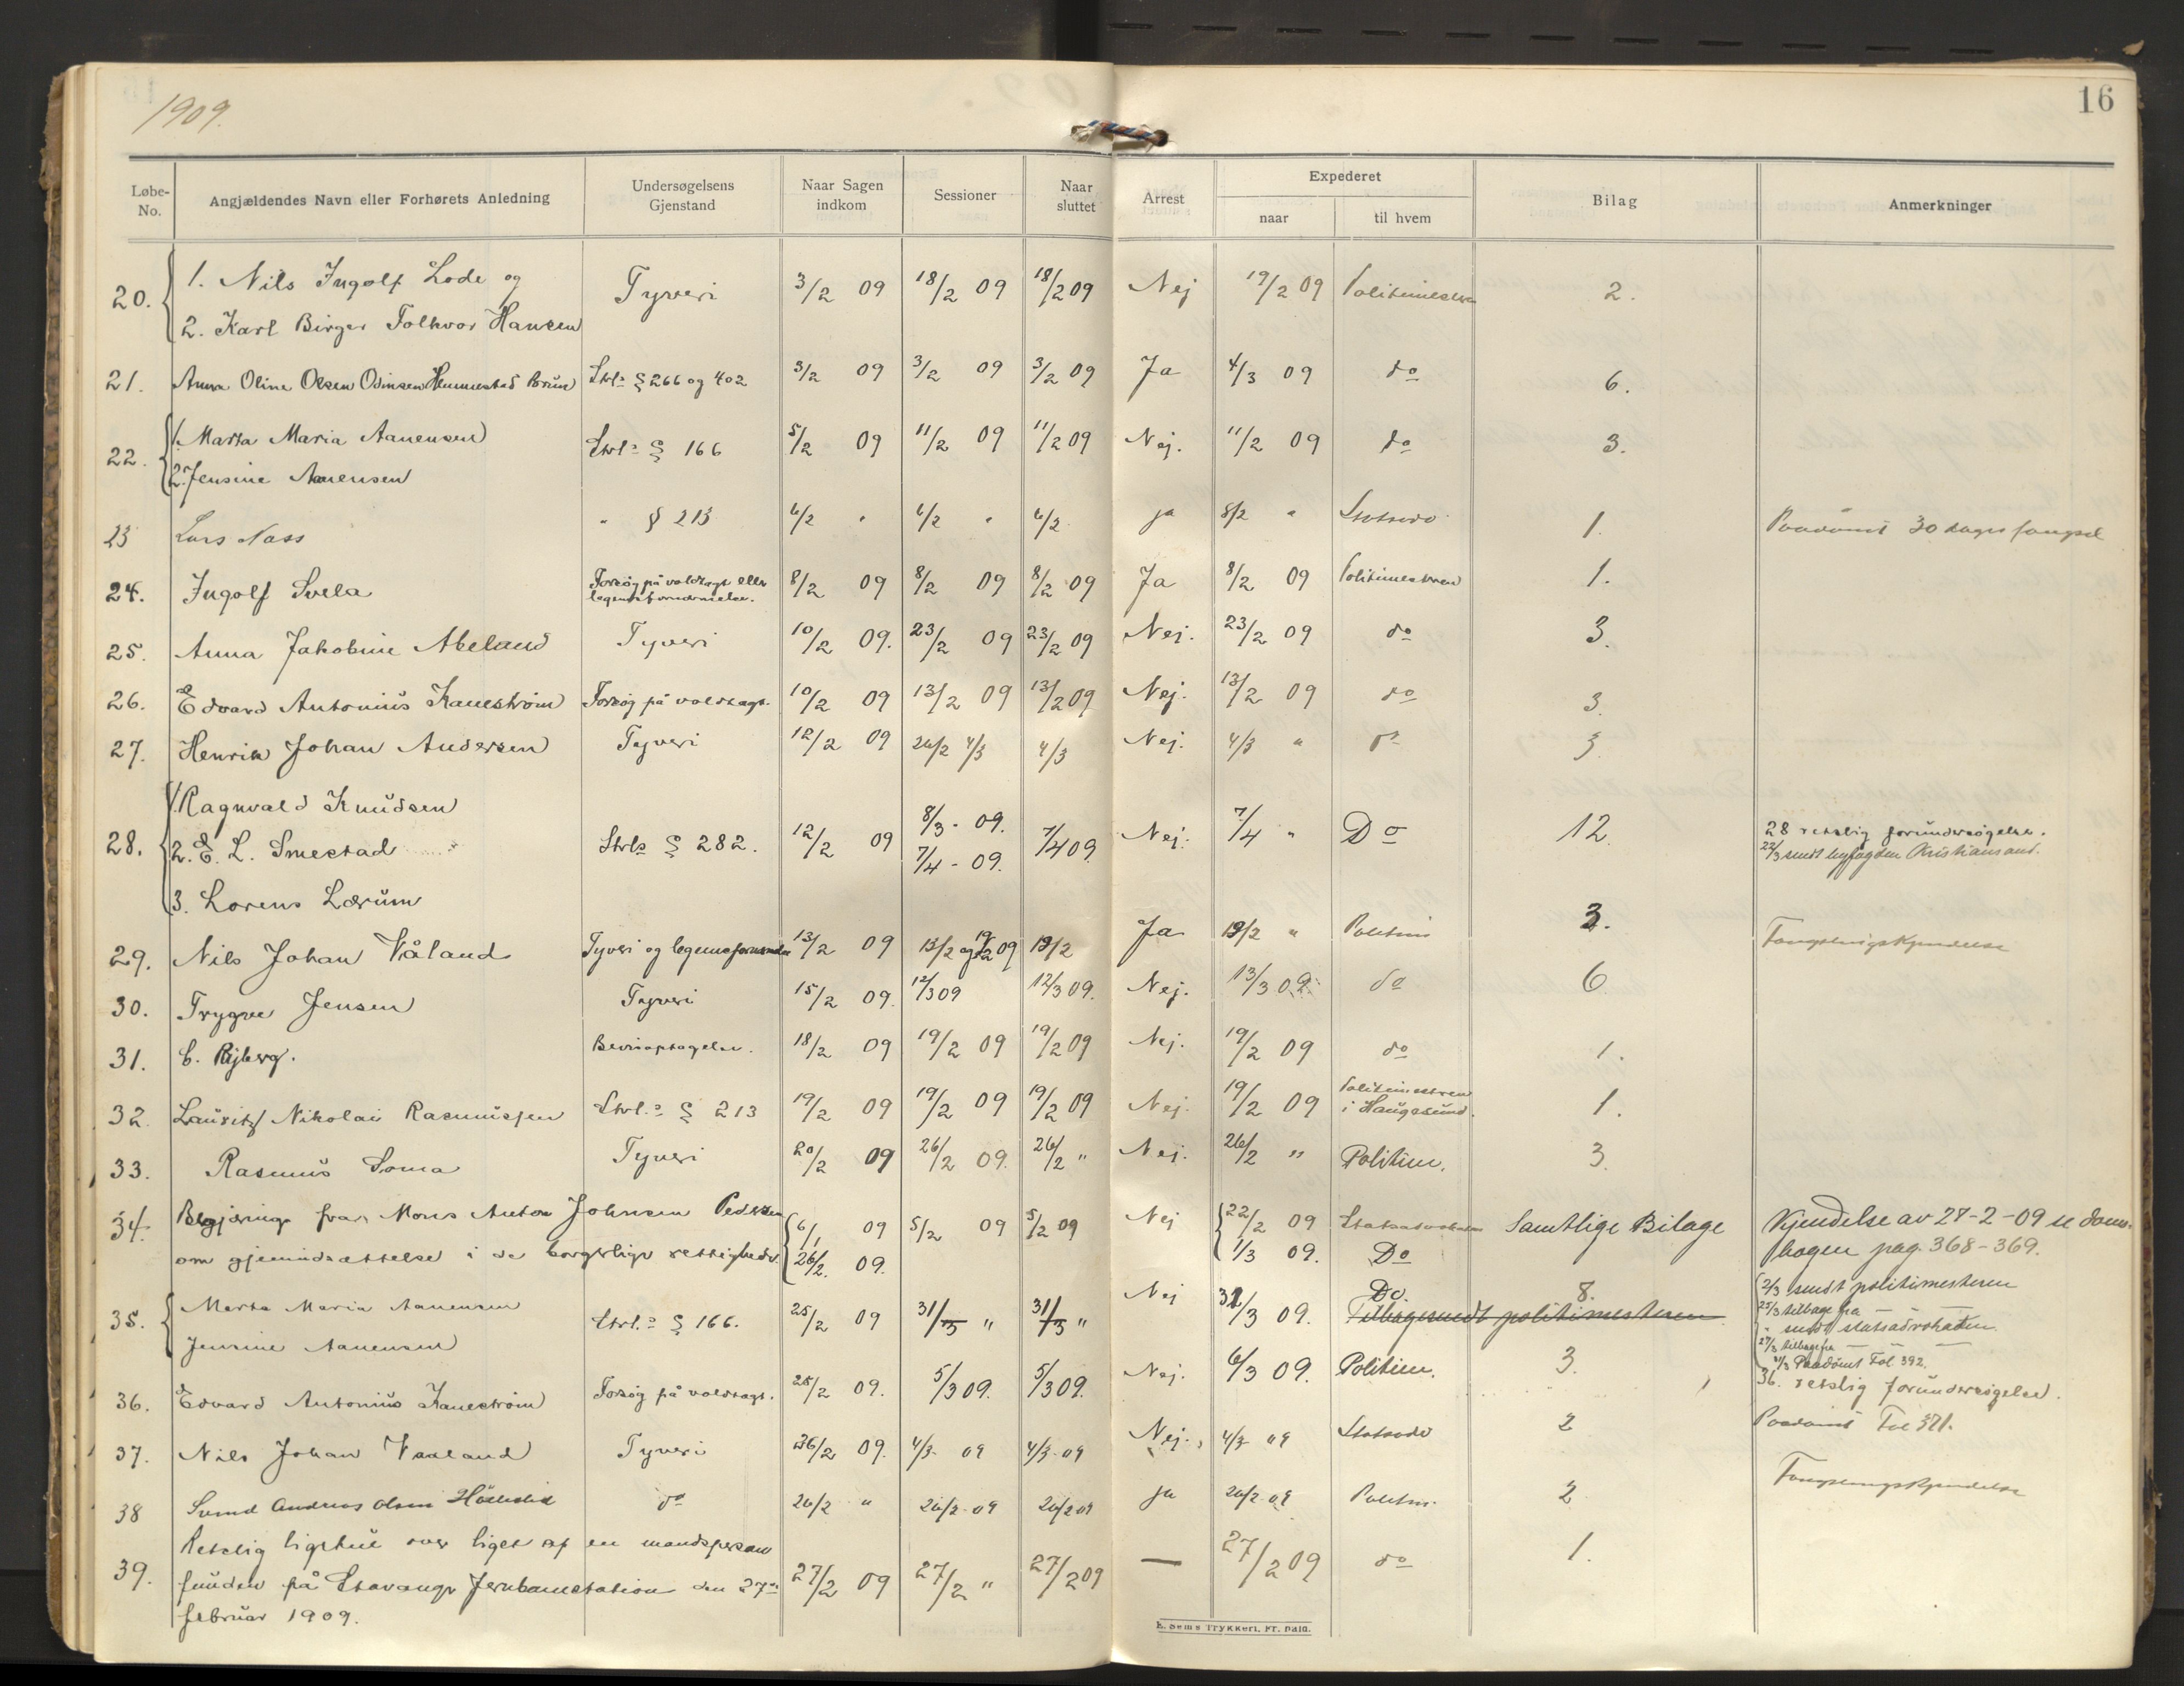 1909.
16
Løbe-No. Angjældendes Navn eller Forhørets Anledning Undersøgelsens Gjenstand Naar Sagen indkom Sessioner Naar sluttet Arrest Expederet naar til hvem Bilag Anmerkninger
20. 1. Nils Ingolf Lode og Tyveri 3/2 09 18/2 09 18/2 09 Nej 19/2 09 Politimesteren 2.
2. Karl Birger Folkvor Hansen
21. Anna Oline Olsen Odinsen Hemmestad Strl. § 266 og 402 3/2 09 3/2 09 3/2 09 Ja 4/3 09 do 6.
22. 1. Marta Maria Aanensen Strl. § 166 5/2 09 11/2 09 11/2 09 Nej. 11/2 09 do 3.
2. Jensine Aanensen
23 Lars Nass " § 213 6/2 " 6/2 " 6/2 ja 8/2 " Statsadv. 1. Paadömt 30 dages fængsel
24. Ingolf Svela Forsög på voldtægt eller 8/2 09 8/2 09 8/2 09 Ja 8/2 09 Politimesteren 1.
legemsfornærmelse.
25. Anna Jakobine Abeland Tyveri 10/2 09. 23/2 09 23/2 09 Nej. 23/2 09 do 3.
26. Edvard Antonius Kaneström Forsög på voldtægt. 10/2 09 13/2 09 13/2 09 Nej. 13/2 09 do 3.
27. Henrik Johan Andersen Tyveri 12/2 09 26/2 4/3 4/3 Nej. 4/3 " do 3
28. 1. Ragnvald Knudsen
2. E. L. Smestad Strl. § 282. 12/2 09 8/3 - 09. 7/4 - 09. 7/4 09. Nej. 7/4 " Do 12. 28 retslig forundersögelse.
22/3 sendt byfogden Kristiansand.
3. Lorens Lærum
29. Nils Johan Våland Tyveri og legemsfornærmelse 13/2 09 13/2 og 19/2 09 19/2 Ja 19/2 " Politim 3. Fængslingskjendelse
30. Trygve Jensen Tyveri 15/2 09. 12/3 09 12/3 09. Nej. 13/3 09. do 6
31. C. Ryberg. Bevisoptagelse. 18/2 09 19/2 09 19/2 09 Nej. 19/2 09 do 1.
32. Lauritz Nikolai Rasmussen Strl. § 213 19/2 09 19/2 09 19/2 09 Nej. 19/2 09 Politimesteren i Haugesund. 1.
33. Rasmus Soma Tyveri 20/2 09 26/2 09. 26/2 " Nej. 26/2 " Politim. 3.
34. Begjæring fra Mons Anton Johnsen Pedersen 6/1 09 5/2 09 5/2 09 Nej 22/2 09 Statsadvokaten Samtlige Bilage Kjendelse av 27-2-09 se doms-
om gjenindsættelse i de borgerlige rettigheder. 26/2. 09. 1/3 09. Do bogen pag. 368-369.
35. Marta Maria Aanensen Strl. § 166. 25/2 09 31/3 " 31/3 " Nej 31/3 09. Do. 8. 2/3 sendt politimesteren
Tilbagesendt politimesteren 25/3 tilbage fra — " —
Jensine Aanensen " sendt statsadvokaten
27/3 tilbage fra — " —
31/3 Paadömt Fol. 392.
36. Edvard Antonius Kaneström Forsög på voldtægt. 25/2 09. 5/3 09. 5/3 09. Nej. 6/3 09. Politim. 3. 36. retslig forundersögelse.
37. Nils Johan Vaaland Tyveri 26/2 09. 4/3 09 4/3 09 Nej. 4/3 09 Statsadv 2 Paadömt Fol 371.
38 Svend Andreas Olsen do 26/2 " 26/2 09 26/2 09 ja 26/2 09 Politm. 2 Fængslingskjendelse
39. Retslig ligskue over liget af en mandsperson
funden på Stavanger Jernbanestation den 27de 27/2 09 27/2 " 27/2 09 — 27/2 09 do 1.
februar 1909.
E. Sems Trykkeri, Fr. hald.